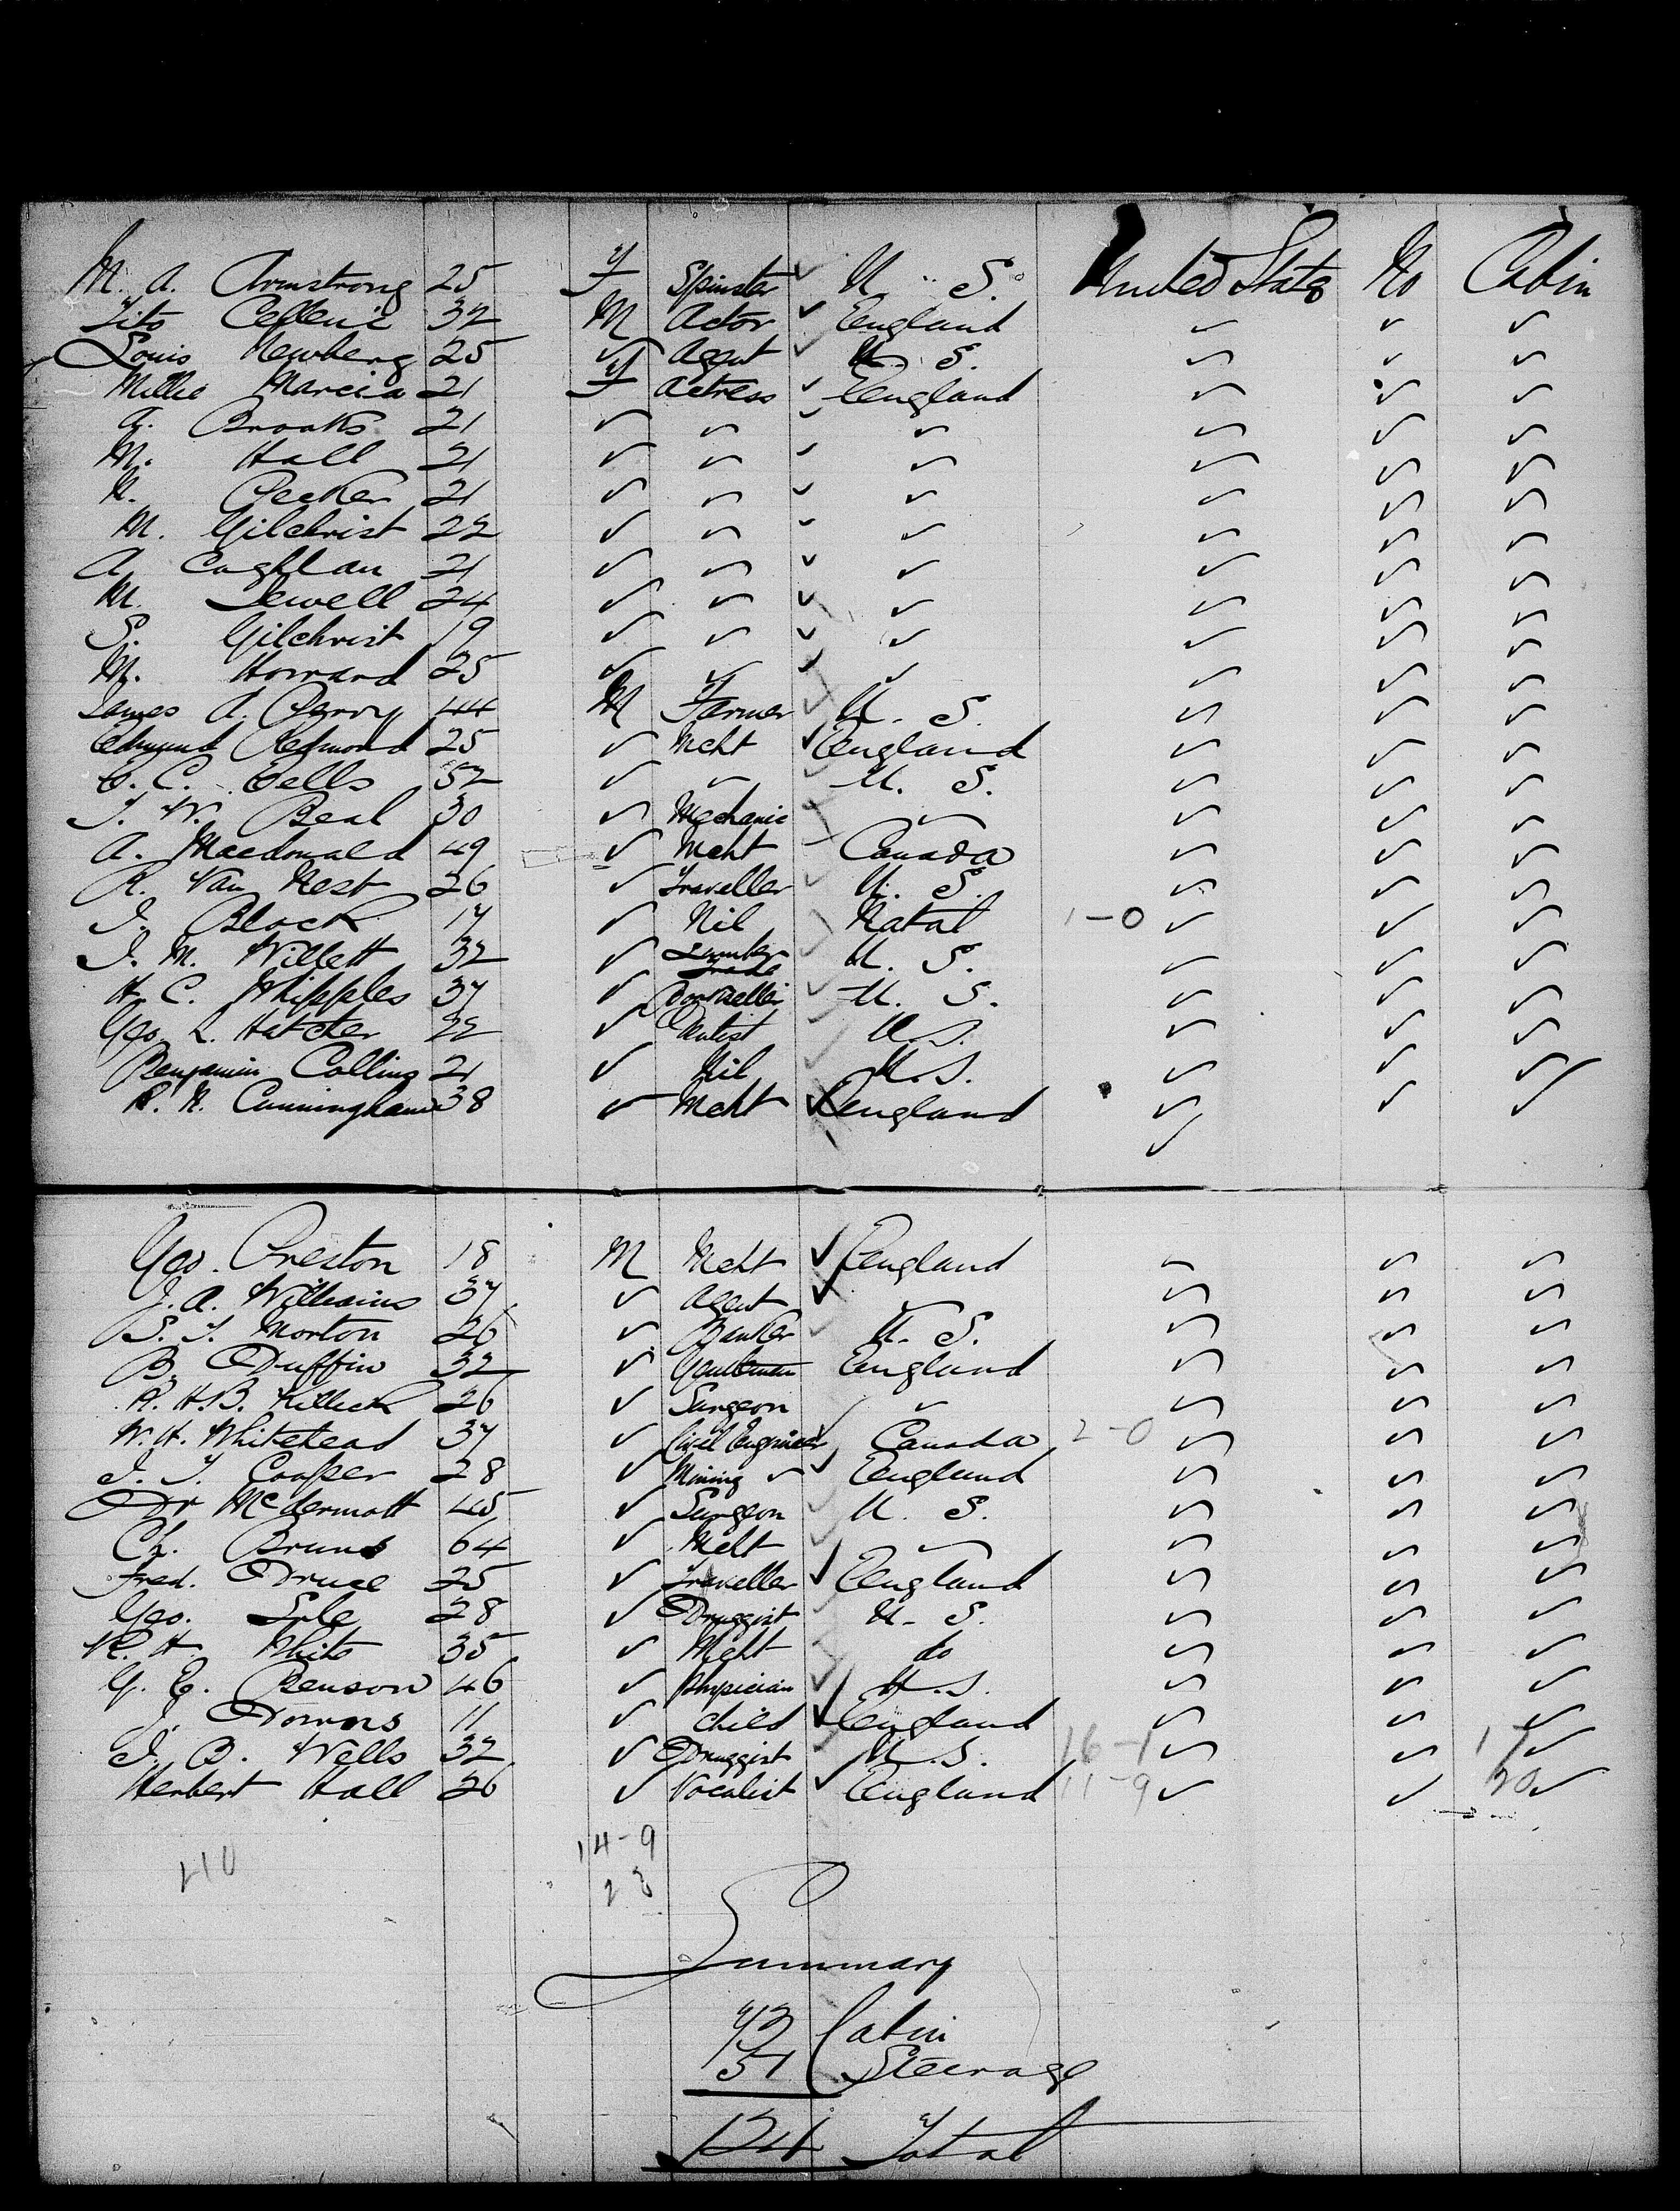 M. A. Armstrong 25 F Spinster ✓ U. S. United States No Cabin
Tito Cellini 32 M Actor ✓ England ✓ ✓ ✓
Louis Newberg 25 ✓ Agent ✓ U. S. ✓ ✓ ✓
Millie Marcia 21 F Actress ✓ England ✓ ✓ ✓
Brooks 21 ✓ ✓ ✓ ✓ ✓ ✓ ✓
M. Hall 21 ✓ ✓ ✓ ✓ ✓ ✓ ✓
N. Becker 21 ✓ ✓ ✓ ✓ ✓ ✓ ✓
M. Gilchrist 22 ✓ ✓ ✓ ✓ ✓ ✓ ✓
A. Coghlan 21 ✓ ✓ ✓ ✓ ✓ ✓ ✓
M. Sewell 24 ✓ ✓ ✓ ✓ ✓ ✓ ✓
S. Gilchrist 19 ✓ ✓ ✓ ✓ ✓ ✓ ✓
M. Howard 25 ✓ ✓ ✓ ✓ ✓ ✓ ✓
James A. Perry 44 M Farmer ✓ U. S. ✓ ✓ ✓
Edmund Redmond 25 ✓ Mcht ✓ England ✓ ✓ ✓
C. Eells 52 ✓ ✓ ✓ U. S. ✓ ✓ ✓
T. W. Beal 30 ✓ Mechanic ✓ ✓ ✓ ✓ ✓
A. Macdonald 49 ✓ Mcht Canada ✓ ✓ ✓
R. Van Nest 26 ✓ Traveller ✓ U. S. ✓ ✓ ✓
J. Block 17 ✓ Nil ✓ Natal 1-0 ✓ ✓ ✓
J. M. Willett 32 ✓ Lumber Trade ✓ U. S. ✓ ✓ ✓
H. C. Whipples 37 ✓ Bookseller ✓ U. S. ✓ ✓ ✓
Geo. L. Hatcher 22 ✓ Dentist ✓ U. S. ✓ ✓ ✓
Benjamin Colling 21 ✓ Nil ✓ U. S. ✓ ✓ ✓
R. N. Cunningham 38 ✓ Mcht ✓ England ✓ ✓ ✓
✓
Geo. Preston 18 M Mcht ✓ England ✓ ✓ ✓
J. A. Williams 37 ✓ Agent ✓ ✓ ✓ ✓ ✓
S. T. Morton 26 ✓ Banker ✓ U. S. ✓ ✓ ✓
B. Duffin 32 ✓ Gentleman England ✓ ✓ ✓
R. H. B. Killick 26 ✓ Surgeon ✓ ✓ ✓ ✓ ✓
W. H. Whitehead 37 ✓ Civil Engineer ✓ Canada 2-0 ✓ ✓ ✓
J. T. Cooper 28 ✓ Mining ✓ ✓ England ✓ ✓ ✓
Dr McDermott 45 ✓ Surgeon ✓ U. S. ✓ ✓ ✓
Ch. Bruno 64 ✓ Mcht ✓ ✓ ✓ ✓ ✓
Fred. Druce 25 ✓ Traveller ✓ England ✓ ✓ ✓
Geo. 28 ✓ Druggist ✓ U. S. ✓ ✓ ✓
R. H. White 35 ✓ Mcht ✓ do ✓ ✓ ✓
G. E. Benson 46 ✓ Physician ✓ U. S. ✓ ✓ ✓
J. Downs 11 ✓ child ✓ England ✓ ✓ ✓
J. B. Wells 32 ✓ Druggist ✓ U. S. 16-1 ✓ ✓ 17 ✓
Herbert Hall 26 ✓ Vocalist ✓ England 11-9 ✓ ✓ 20 ✓
14-9
Summary
73 Cabin
51 Steerage
124 Total